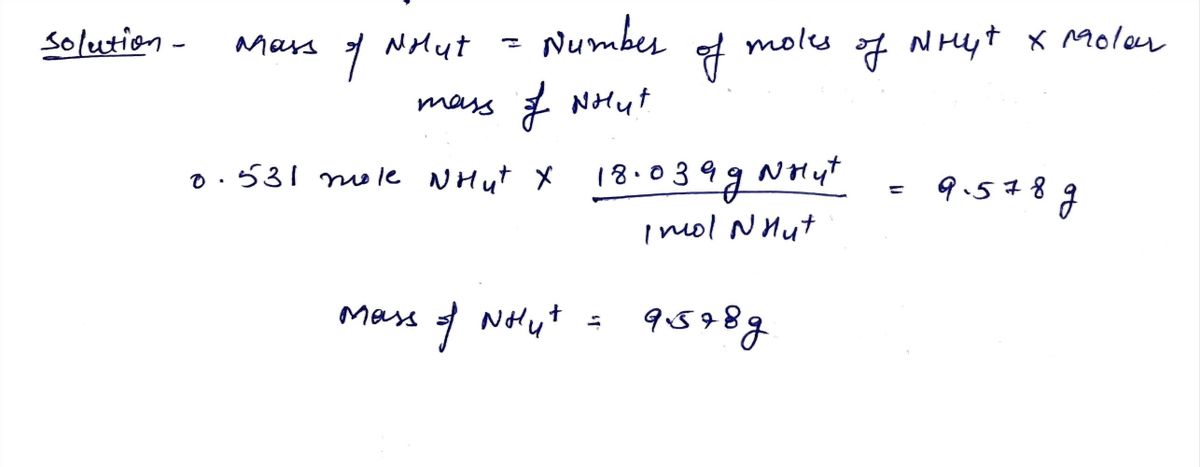 Solution - Mass of NH4+ = Number of moles of NH4+ x Molar
mass of NH4+
0.531 mole NH4+ x 18.039g NH4+ = 9.578 g
1 mol NH4+
Mass of NH4+ = 9.578g